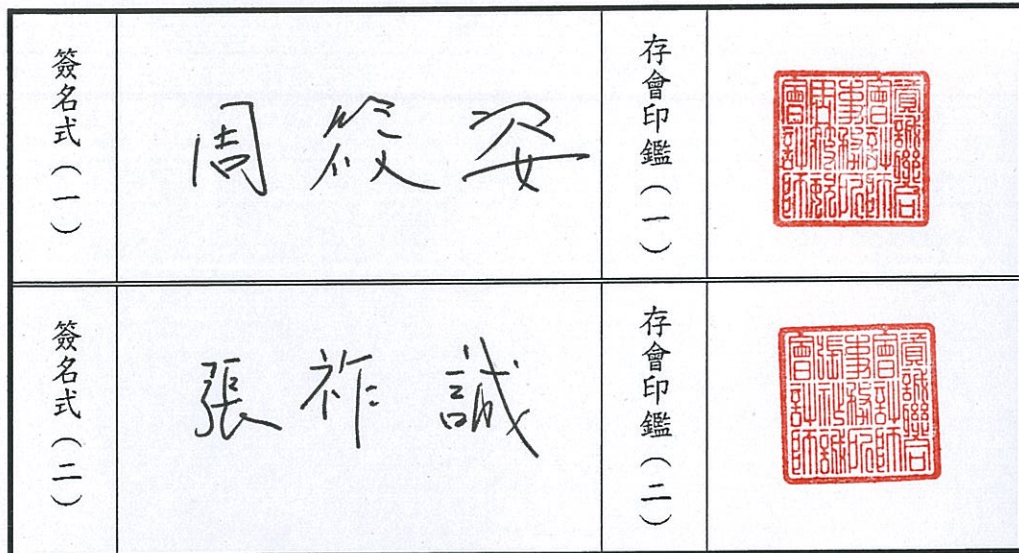 簽名式(一)
周筱姿
存會印鑑(一)
資誠聯合
會計師
事務所
周筱姿
會計師
簽名式(二)
張祚誠
存會印鑑(二)
資誠聯合
會計師
事務所
張祚誠
會計師